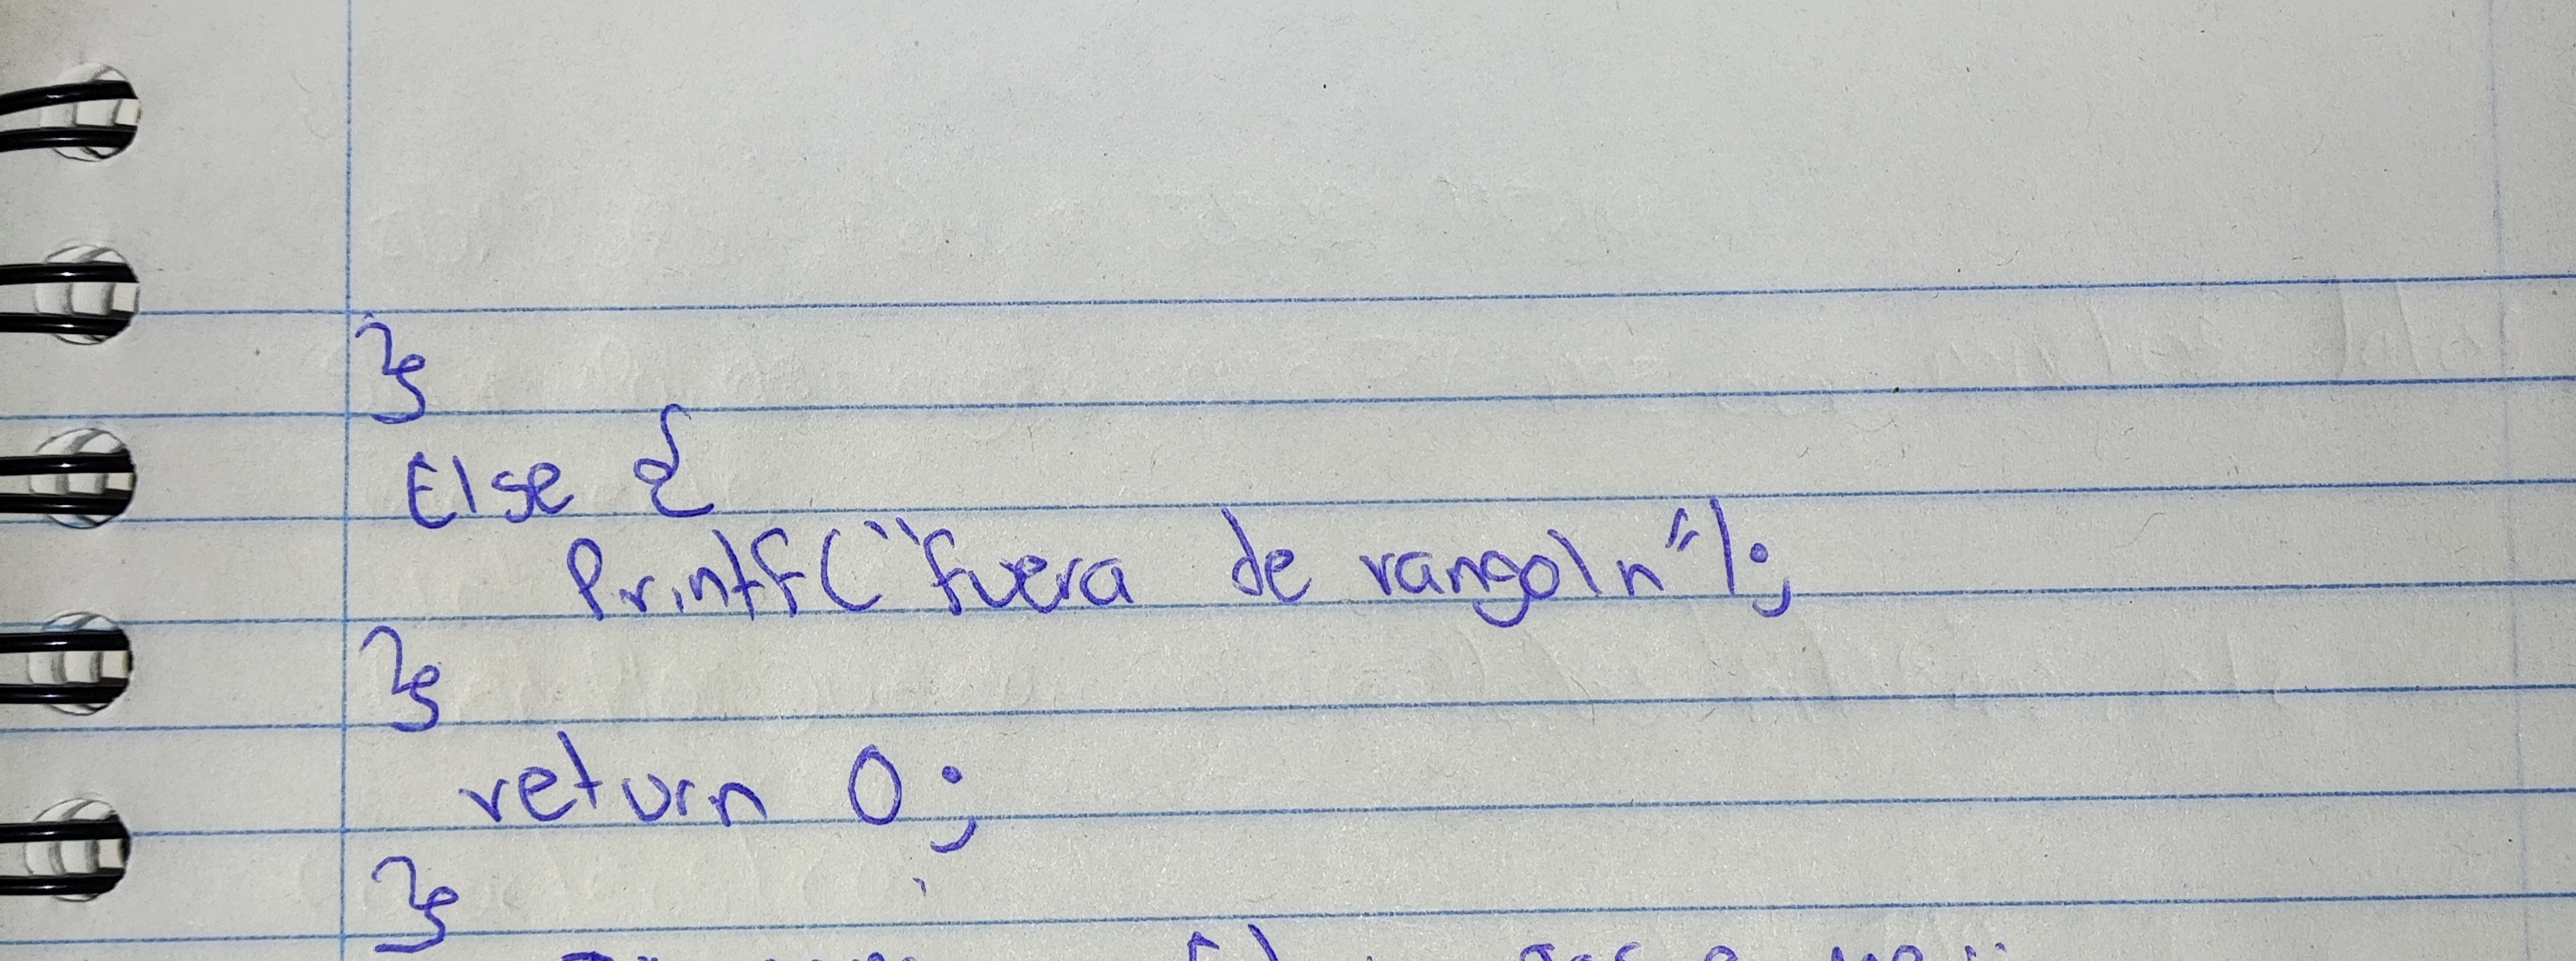 }
Else {
Printf("fuera de rango\n");
}
return 0;
}